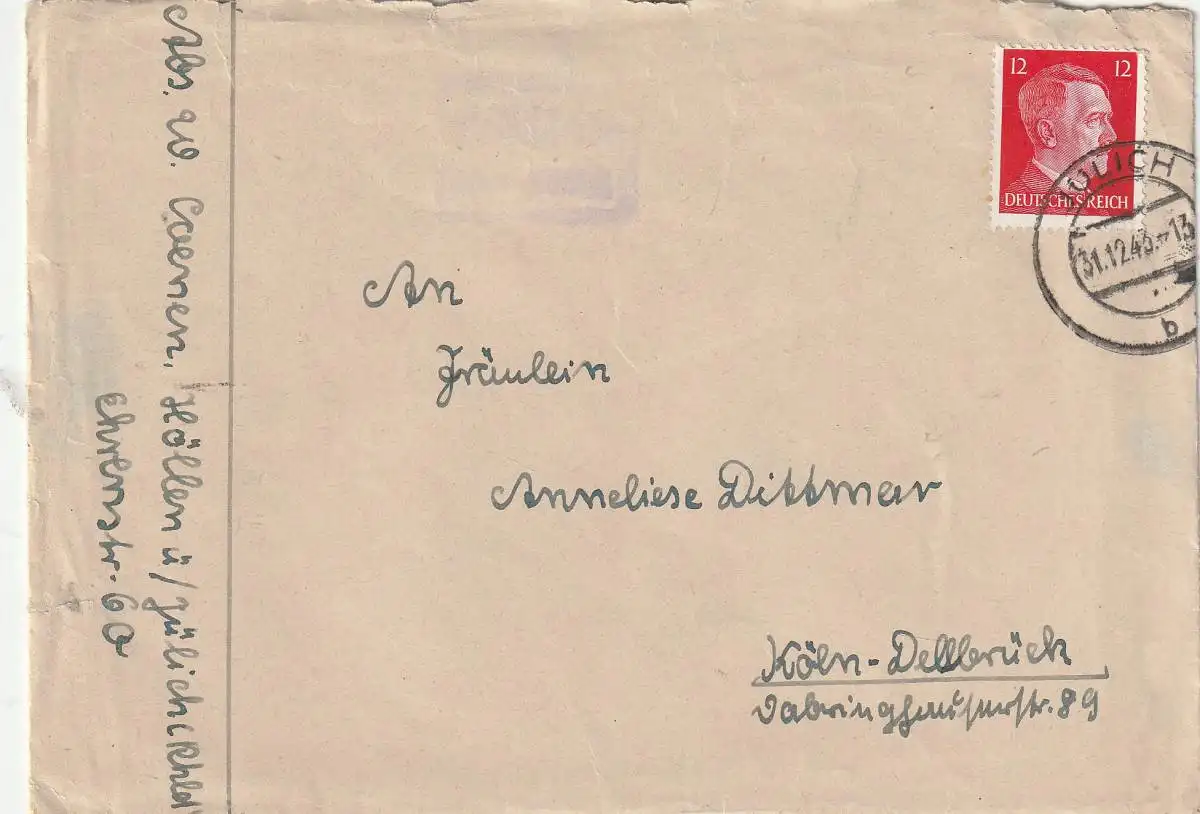 12 12
DEUTSCHES REICH
JÜLICH
31.12.43.-13
b
An
Fräulein
Anneliese Dittmar
Köln-Dellbrück
Dabringhauserstr. 89
Abs. W. Coenen, Höllen ü/Jülich
Ehrenstr. 60